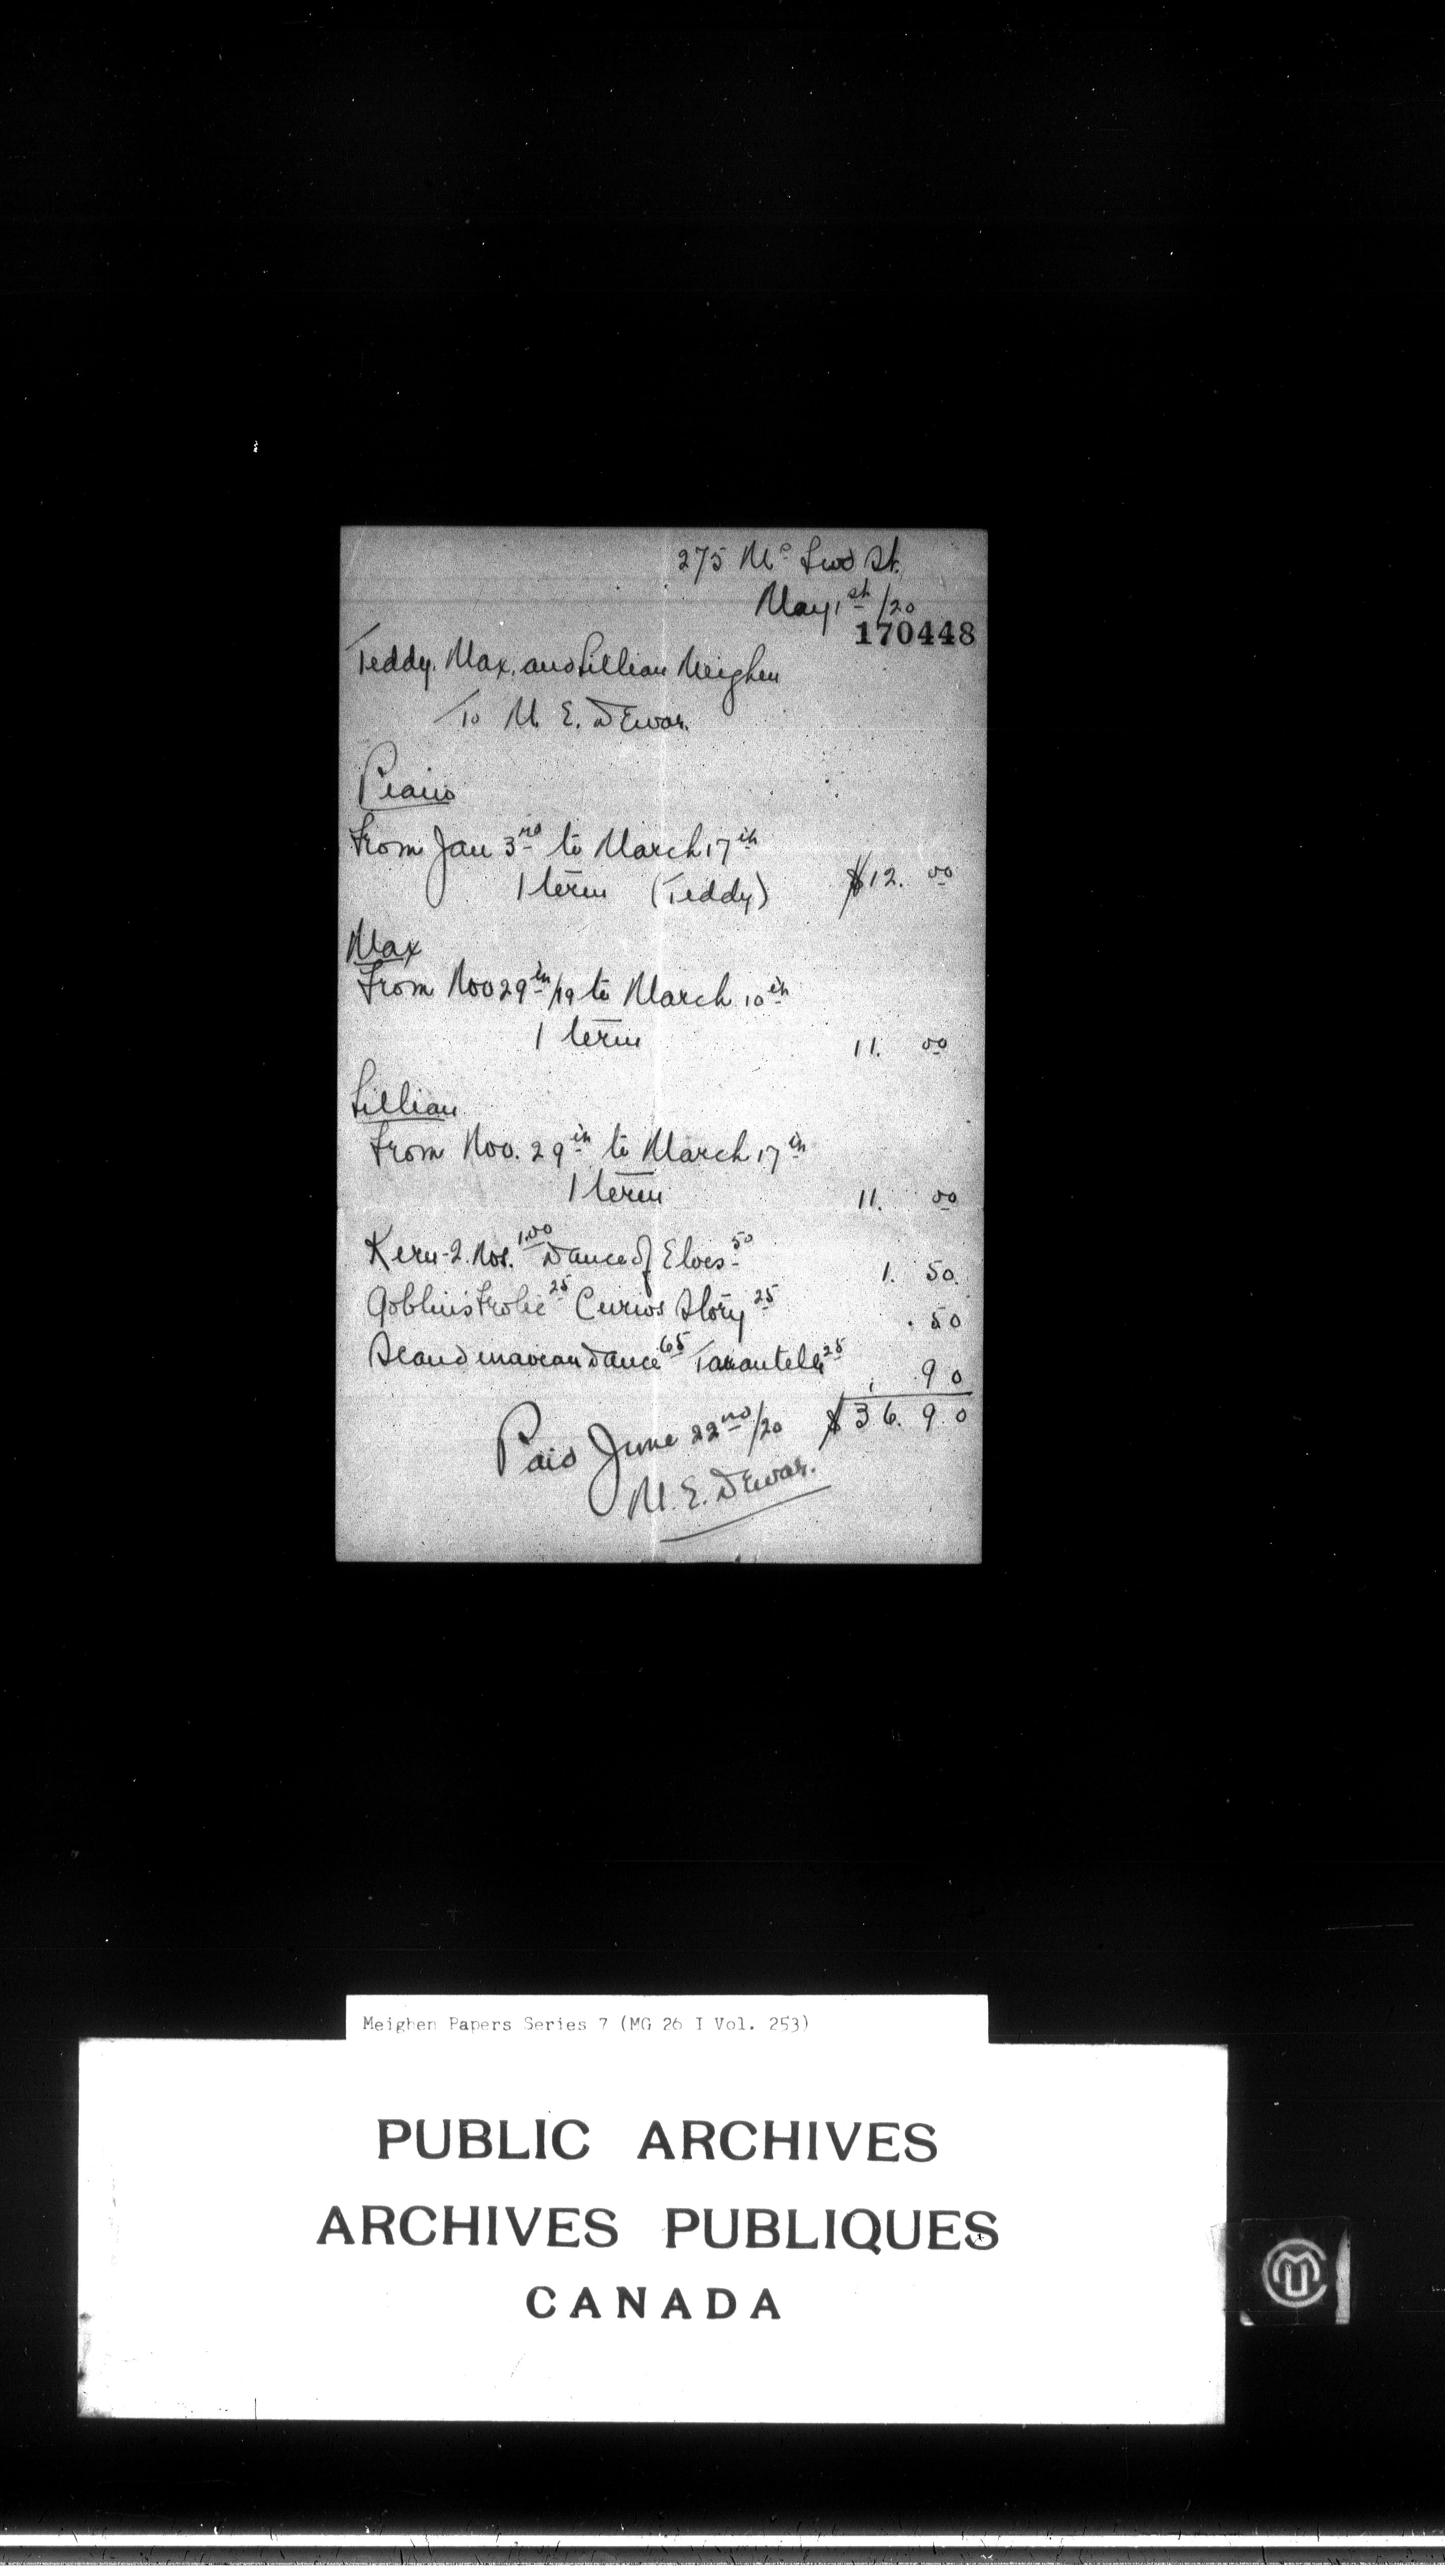 275 Mc Leod St.
May 1st /20
170448
Teddy, Max, and Lillian Meighen
To M. E. Dewar.
Piano
From Jan 3rd to March 17th
1 term (Teddy) $12. 00
Max
From Nov 29th /19 to March 10th
1 term 11. 00
Lillian
From Nov. 29th to March 17th
1 term 11. 00
Kern - 2. Nos. 1.00 Dance of Elves - 50 1. 50.
Goblins Frolic 25 Curios Story 25 . 50
Scandinavian Dance 65 Tarantella 25 . 90
$36. 90
Paid June 22nd/20
M. E. Dewar.
Meighen Papers Series 7 (MG 26 I Vol. 253)
PUBLIC ARCHIVES
ARCHIVES PUBLIQUES
CANADA